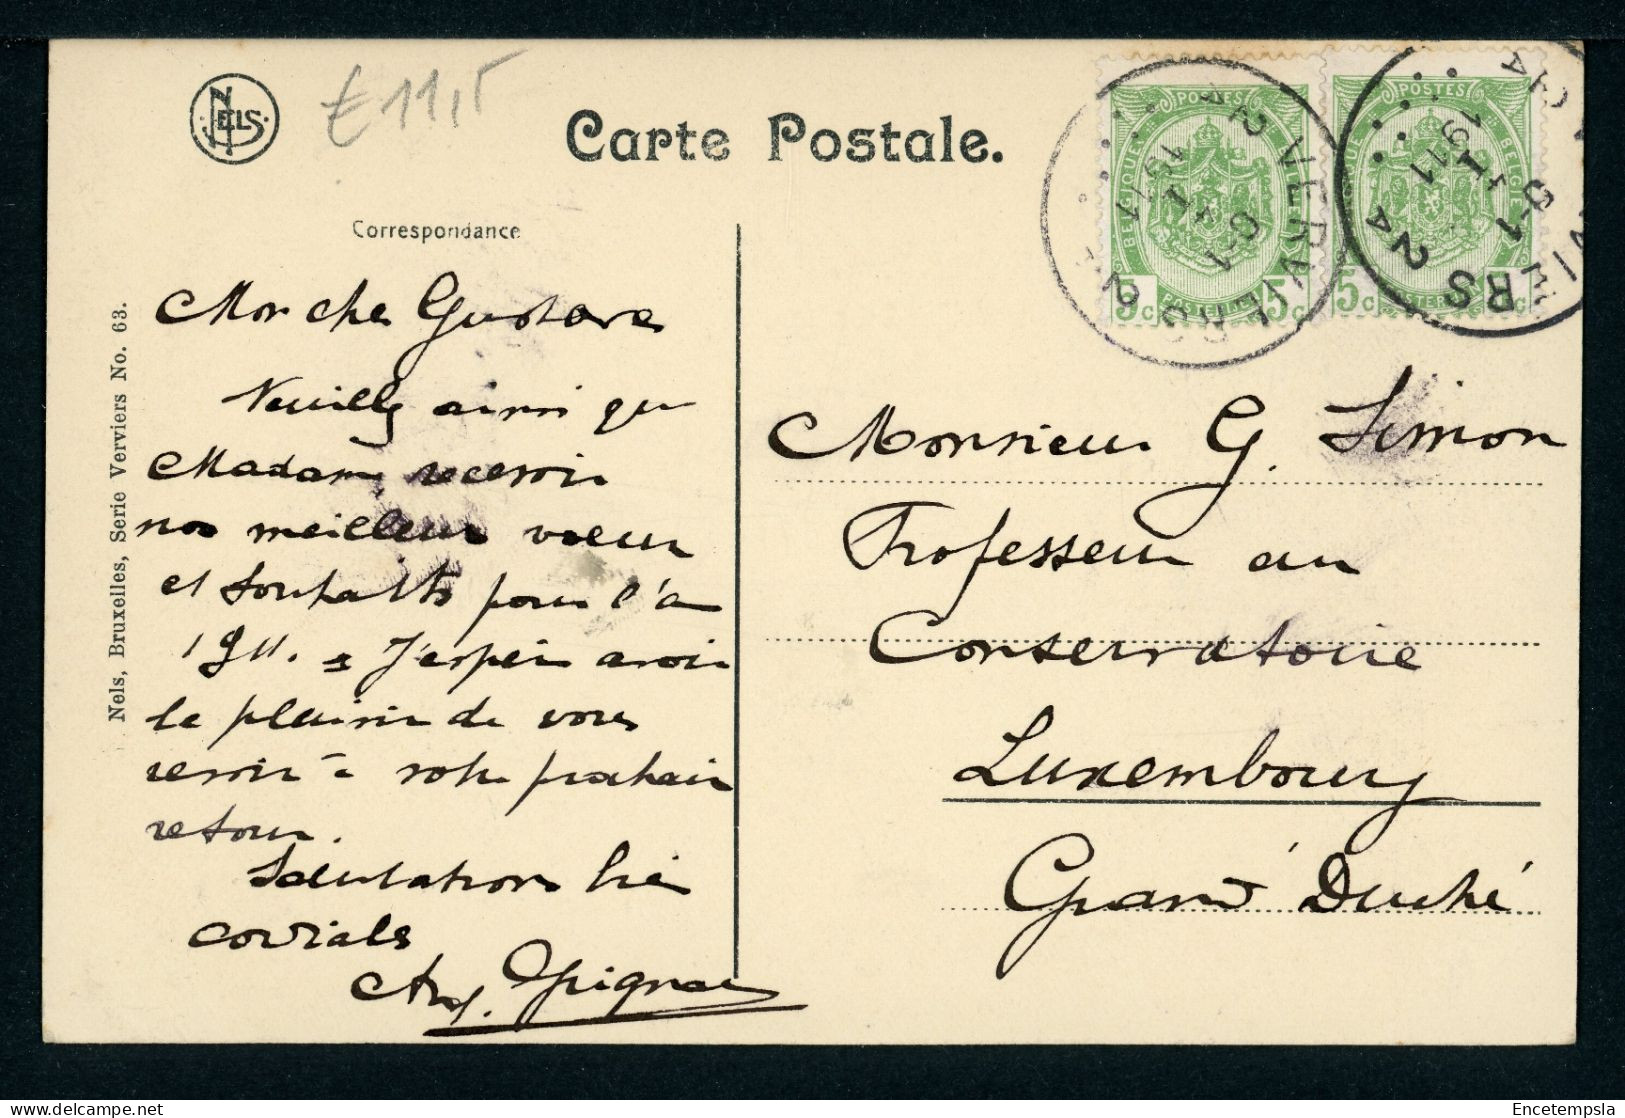 NELS
€ 11,5
Carte Postale.
Correspondance
Nels, Bruxelles, Serie Verviers No. 63.
Mon cher Gustave
Veuillez ainsi que
Madame recevoir
nos meilleurs voeux
et souhaits pour l'an
1911. J'espère avoir
le plaisir de vous
revoir à votre prochain
retour.
Salutations bien
cordiales
POSTES
BELGIQUE BELGIE
POSTERIJEN
5c 5c
VERVIERS 2
2A
1911
POSTES
BELGIQUE BELGIE
POSTERIJEN
5c
VERVIERS 2A
1911
Monsieur G. Simon
Professeur au
Conservatoire
Luxembourg
Grand Duché
Encetempsla